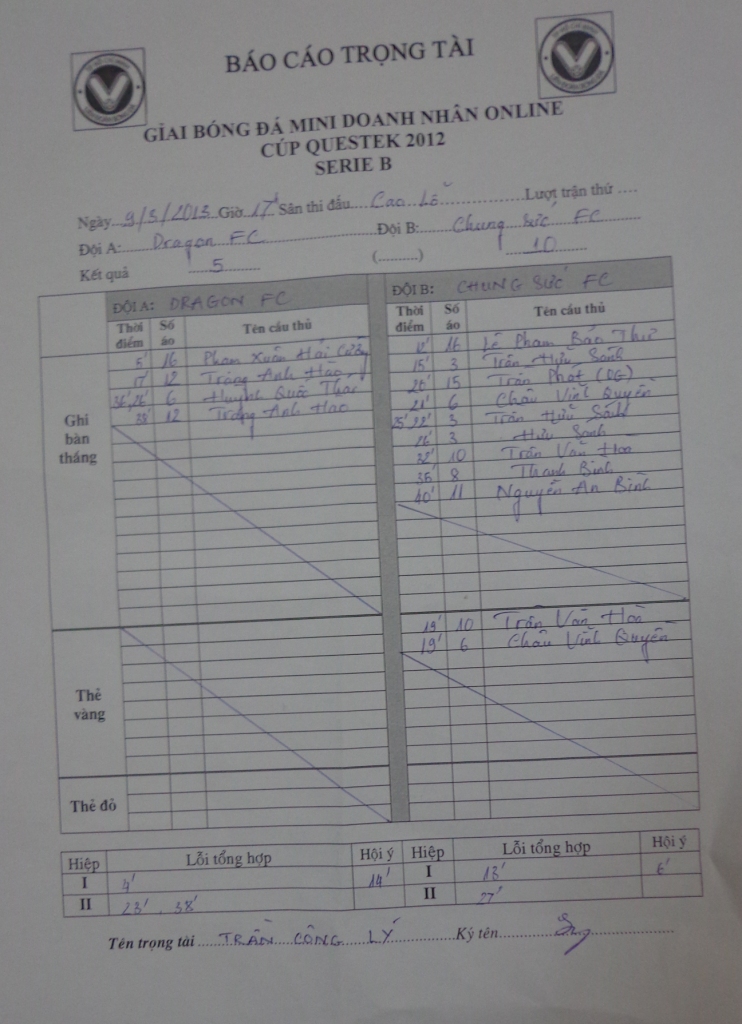 BÁO CÁO TRỌNG TÀI
GIẢI BÓNG ĐÁ MINI DOANH NHÂN ONLINE
CÚP QUESTEK 2012
SERIE B
Ngày 9/3/2013 Giờ 17h Sân thi đấu Cao Lỗ Lượt trận thứ ....
Đội A: Dragon FC Đội B: Chung Sức FC
Kết quả 5 (..........) 10
ĐỘI A: DRAGON FC ĐỘI B: CHUNG SỨC FC
Thời điểm Số áo Tên cầu thủ Thời điểm Số áo Tên cầu thủ
Ghi bàn thắng
5' 16 Phạm Xuân Hải 12' 16 Lê Phạm Bảo Thư
17' 12 Trần Anh Hào 15' 3 Trần Hữu Sanh
36', 26' 6 Huỳnh Quốc Thái 20' 15 Trần Phát (OG)
38' 12 Trần Anh Hào 21' 6 Châu Vĩnh Quyền
25' 22' 3 Trần Hữu Sanh
26' 3 Hữu Sanh
32' 10 Trần Văn Hoà
36' 8 Thanh Bình
40' 11 Nguyễn An Bình
Thẻ vàng
19' 10 Trần Văn Hoà
19' 6 Châu Vĩnh Quyền
Thẻ đỏ
Hiệp Lỗi tổng hợp Hội ý Hiệp Lỗi tổng hợp Hội ý
I 4' 14' I 13' 6'
II 23', 38' II 27'
Tên trọng tài TRẦN CÔNG LÝ Ký tên